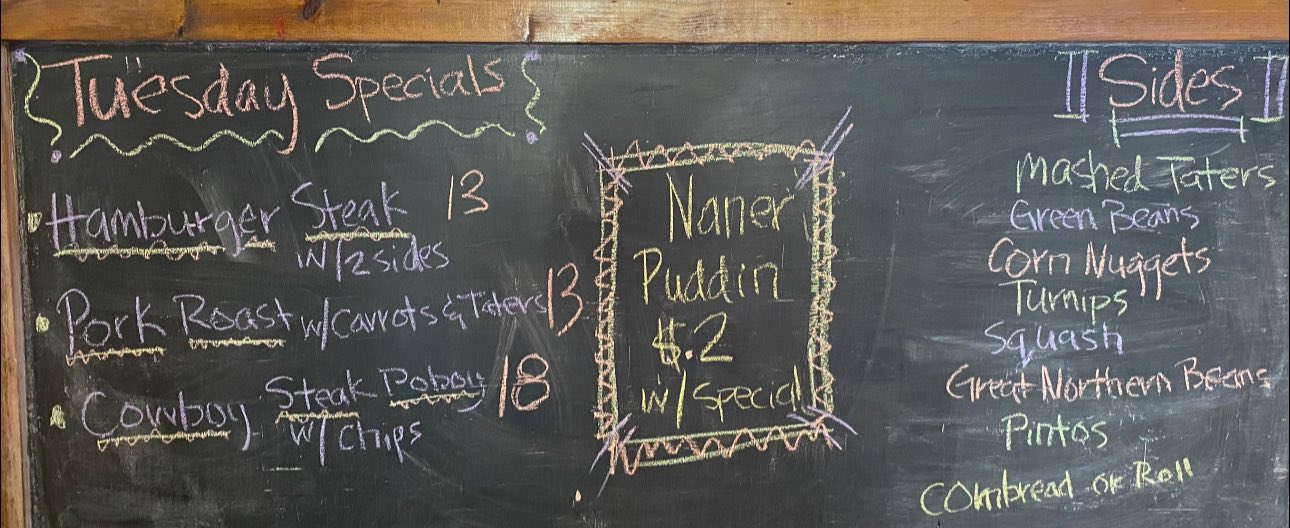 Tuesday Specials
Hamburger Steak 13
w/2 sides
Pork Roast w/carrots & Taters 13
Cowboy Steak Poboy 18
w/ chips
Naner
Puddin
$.2
w/ special
Sides
Mashed Taters
Green Beans
Corn Nuggets
Turnips
Squash
Great Northern Beans
Pintos
Cornbread or Roll